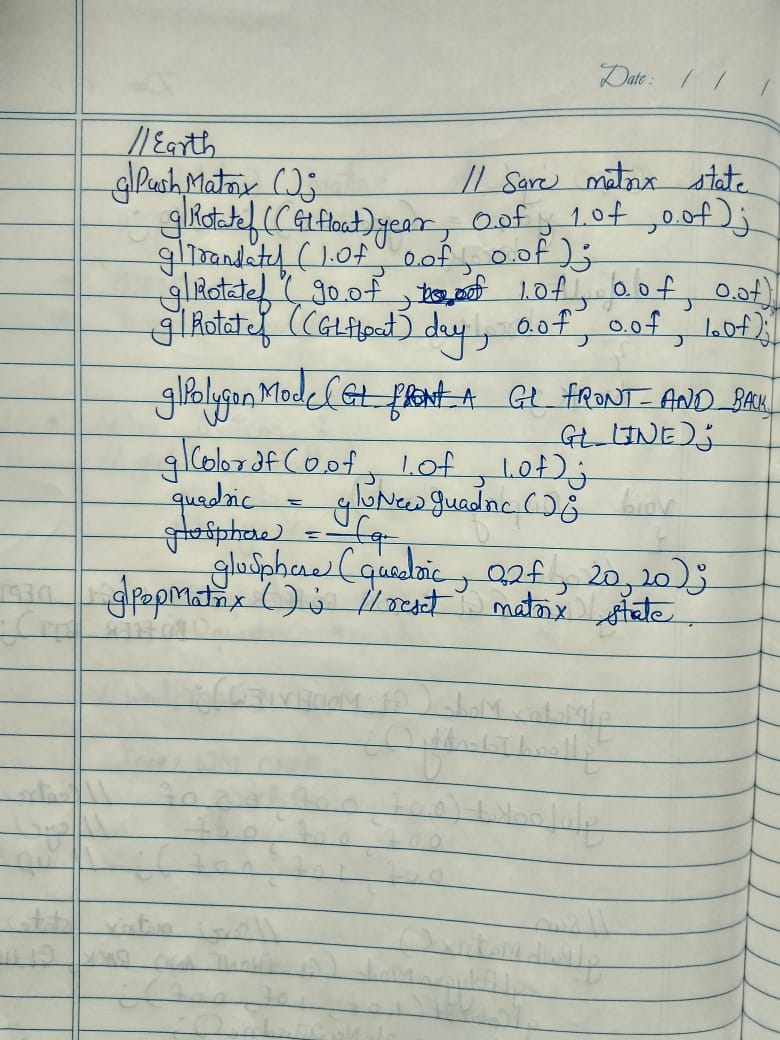 Date: / / /
//Earth
glPushMatrix (); // Save matrix state
glRotatef((GLfloat)year, 0.0f, 1.0f, 0.0f);
glTranslatef (1.0f, 0.0f, 0.0f);
glRotatef (90.0f, 1.0f, 0.0f, 0.0f)
glRotatef ((GLfloat) day, 0.0f, 0.0f, 1.0f);
glPolygonMode(GL_FRONT_A GL_FRONT_AND_BACK,
GL_LINE);
glColor3f(0.0f, 1.0f, 1.0f);
quadric = gluNewQuadric ();
gluSphere = (q
gluSphere (quadric, 0.2f, 20, 20);
glPopMatrix (); //reset matrix state.